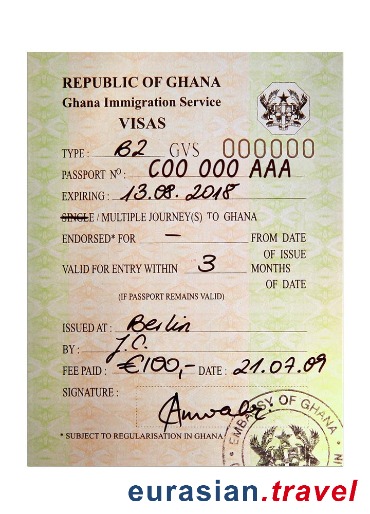 REPUBLIC OF GHANA
Ghana Immigration Service
VISAS
TYPE: B2 GVS 000000
PASSPORT Nº: C00 000 AAA
EXPIRING: 13.08.2018
SINGLE / MULTIPLE JOURNEY(S) TO GHANA
ENDORSED* FOR – FROM DATE
OF ISSUE
VALID FOR ENTRY WITHIN 3 MONTHS
OF DATE
(IF PASSPORT REMAINS VALID)
ISSUED AT: Berlin
BY: J.C.
FEE PAID: €100,- DATE: 21.07.09
SIGNATURE:
* SUBJECT TO REGULARISATION IN GHANA
EMBASSY OF GHANA
eurasian.travel